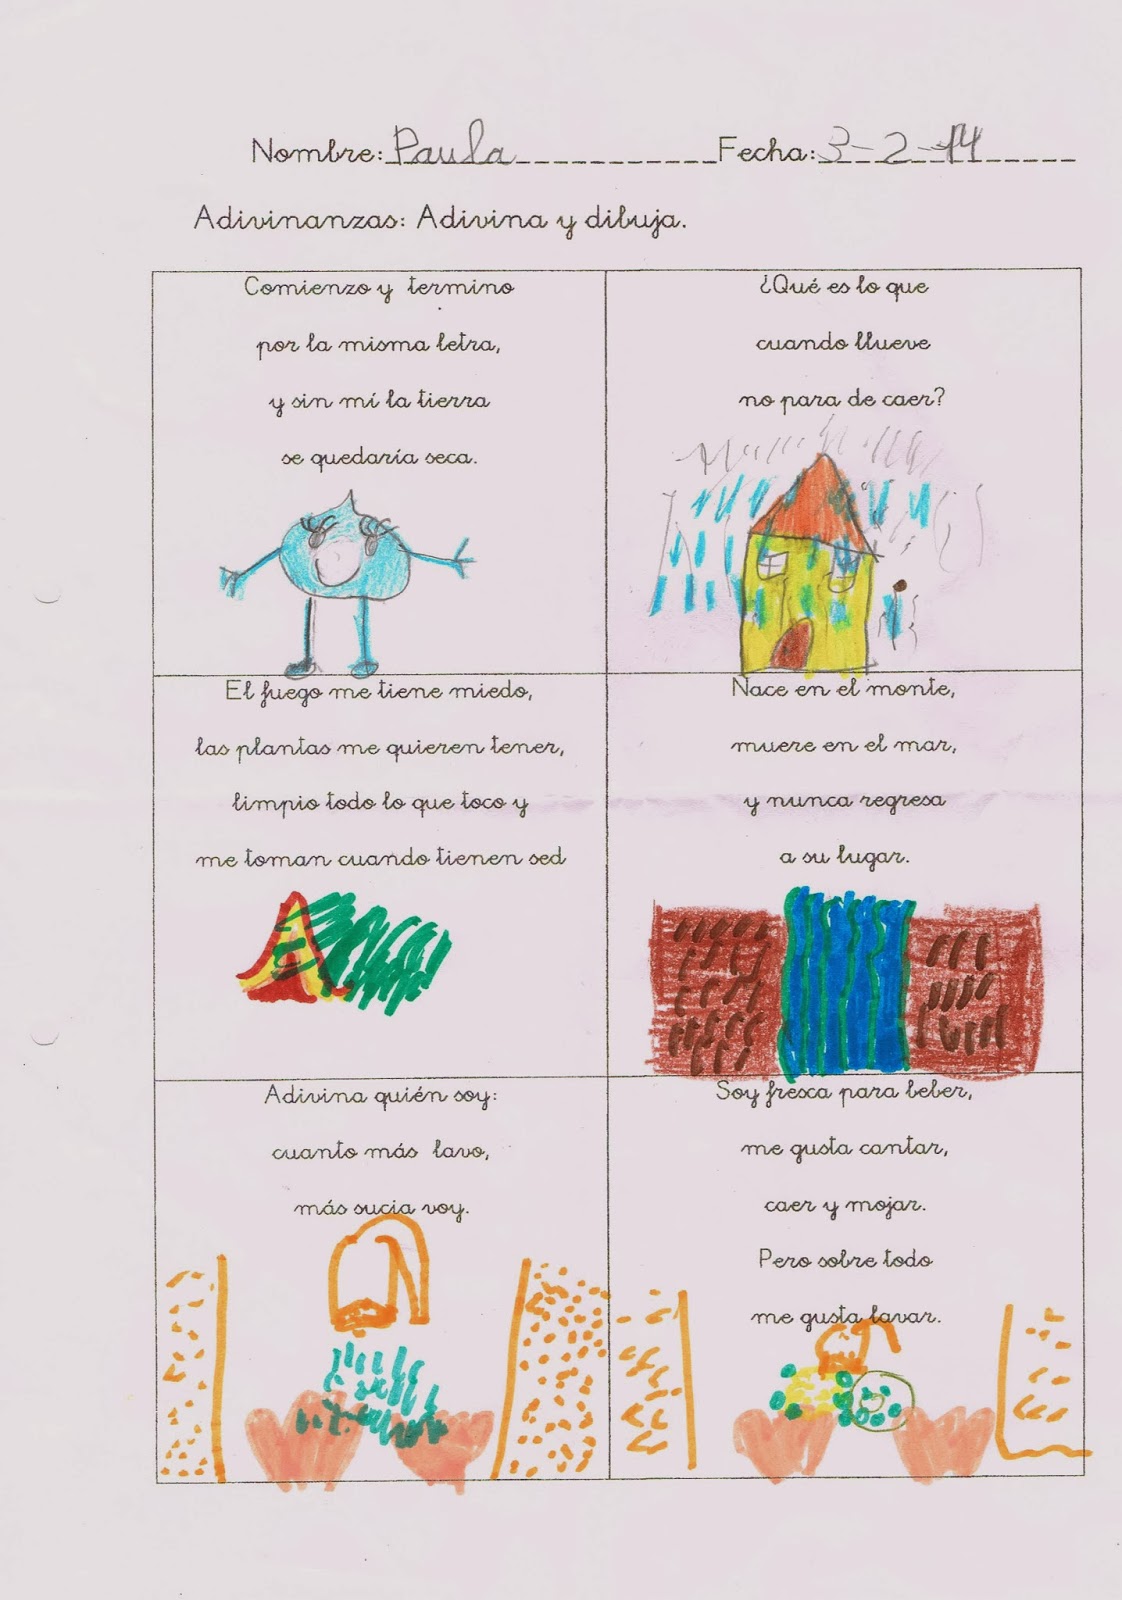 Nombre: Paula Fecha: 3-2-14
Adivinanzas: Adivina y dibuja.
Comienzo y termino
por la misma letra,
y sin mí la tierra
se quedaría seca.
¿Qué es lo que
cuando llueve
no para de caer?
El fuego me tiene miedo,
las plantas me quieren tener,
limpio todo lo que toco y
me toman cuando tienen sed
Nace en el monte,
muere en el mar,
y nunca regresa
a su lugar.
Adivina quién soy:
cuanto más lavo,
más sucia voy.
Soy fresca para beber,
me gusta cantar,
caer y mojar.
Pero sobre todo
me gusta lavar.